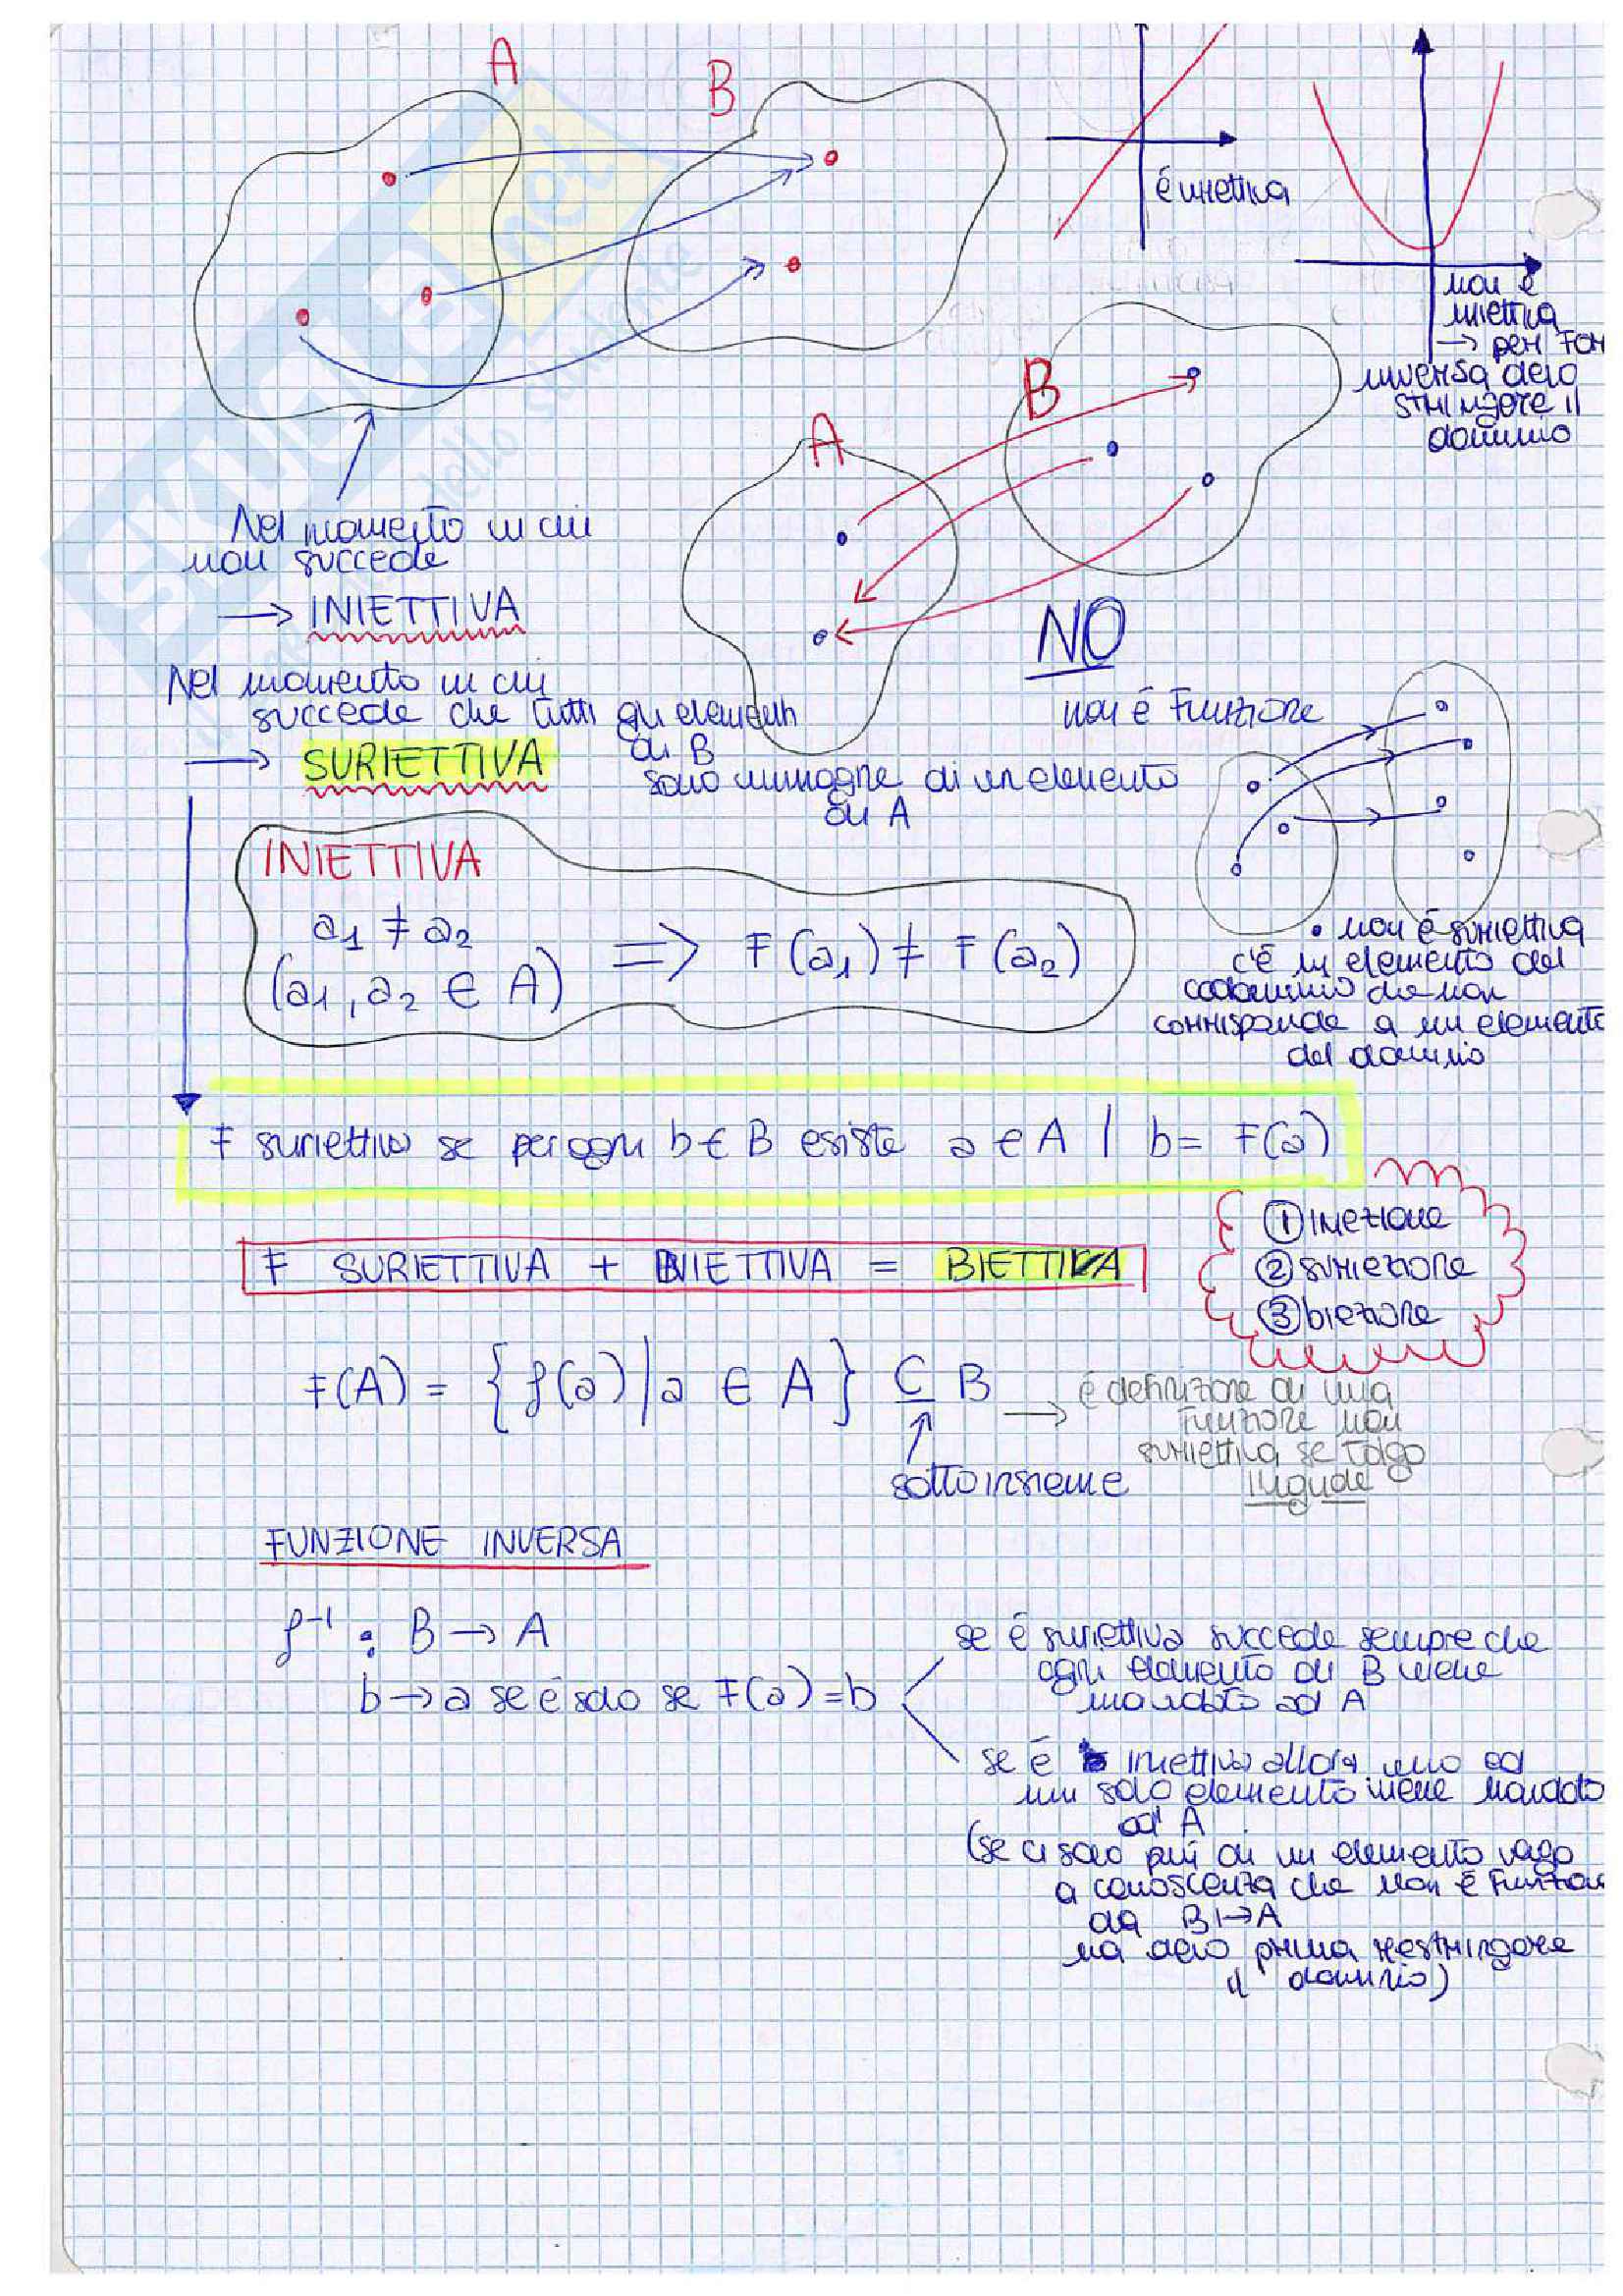 A
B
é iniettiva
non è
iniettiva
→ per FAR
inversa devo
stringere il
dominio
A
B
Nel momento in cui
non succede
→ INIETTIVA
NO
non é Funzione
Nel momento in cui
succede che tutti gli elementi
di B
→ SURIETTIVA
sono immagine di un elemento
di A
INIETTIVA
a1 ≠ a2
(a1, a2 ∈ A) => F(a1) ≠ F(a2)
• non é suriettiva
c'é un elemento del
codominio che non
corrisponde a un elemento
del dominio
F suriettiva se per ogni b ∈ B esiste a ∈ A | b = F(a)
① iniezione
② suriezione
③ biezione
F SURIETTIVA + INIETTIVA = BIETTIVA
F(A) = {f(a) | a ∈ A} ⊆ B
→ é definizione di una
funzione non
suriettiva se tolgo
l'uguale
sottoinsieme
FUNZIONE INVERSA
f⁻¹ : B → A
b → a se é solo se F(a) = b
se é suriettiva succede sempre che
ogni elemento di B viene
mandato ad A
se é iniettiva allora uno ed
un solo elemento viene mandato
ad A
(se ci sono piú di un elemento vengo
a conoscenza che non é Funzione
da B ↦ A
ma devo prima restringere
il dominio)
SKUOLA.net